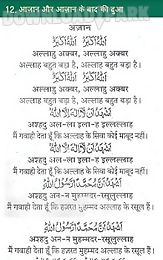 12. आज़ान और आज़ान के बाद की दुआ
अज़ान
اَللهُ اَكْبَرُ اَللهُ اَكْبَرُ
अल्लाहु अक्बर अल्लाहु अक्बर
अल्लाह बहुत बड़ा है, अल्लाह बहुत बड़ा है,
اَللهُ اَكْبَرُ اَللهُ اَكْبَرُ
अल्लाहु अक्बर, अल्लाहु अक्बर
अल्लाह बहुत बड़ा है, अल्लाह बहुत बड़ा है,
اَشْهَدُ اَنْ لَّا اِلٰهَ اِلَّا اللهُ
अश्हदु अल्-ला इला-ह इल्लल्लाह
मैं गवाही देता हूँ कि अल्लाह के सिवा कोई माबूद नहीं।
اَشْهَدُ اَنْ لَّا اِلٰهَ اِلَّا اللهُ
अश्हदु अल्-ला इला-ह इल्लल्लाह
मैं गवाही देता हूँ कि अल्लाह के सिवा कोई माबूद नहीं।
اَشْهَدُ اَنَّ مُحَمَّدًا رَّسُوْلُ اللهِ
अश्हदु अन-न मुहम्मदर-रसूलुल्लाह
मैं गवाही देता हूँ कि हज़रत मुहम्मद अल्लाह के रसूल हैं।
اَشْهَدُ اَنَّ مُحَمَّدًا رَّسُوْلُ اللهِ
अश्हदु अन-न मुहम्मदर-रसूलुल्लाह
मैं गवाही देता हूँ कि हज़रत मुहम्मद अल्लाह के रसूल हैं।